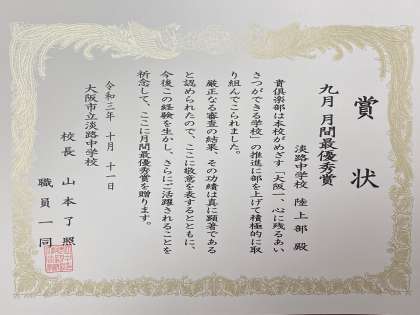 賞状
九月 月間最優秀賞
淡路中学校 陸上部 殿
貴倶楽部は本校がめざす「大阪一、心に残るあい
さつができる学校」の推進に部を上げて積極的に取
り組んでこられました。
厳正なる審査の結果、その功績は真に顕著である
と認められたので、ここに敬意を表するとともに、
今後この経験を生かし、さらにご活躍されることを
祈念して、ここに月間最優秀賞を贈ります。
令和三年 十月 十一日
大阪市立淡路中学校
校長 山本了照
職員一同